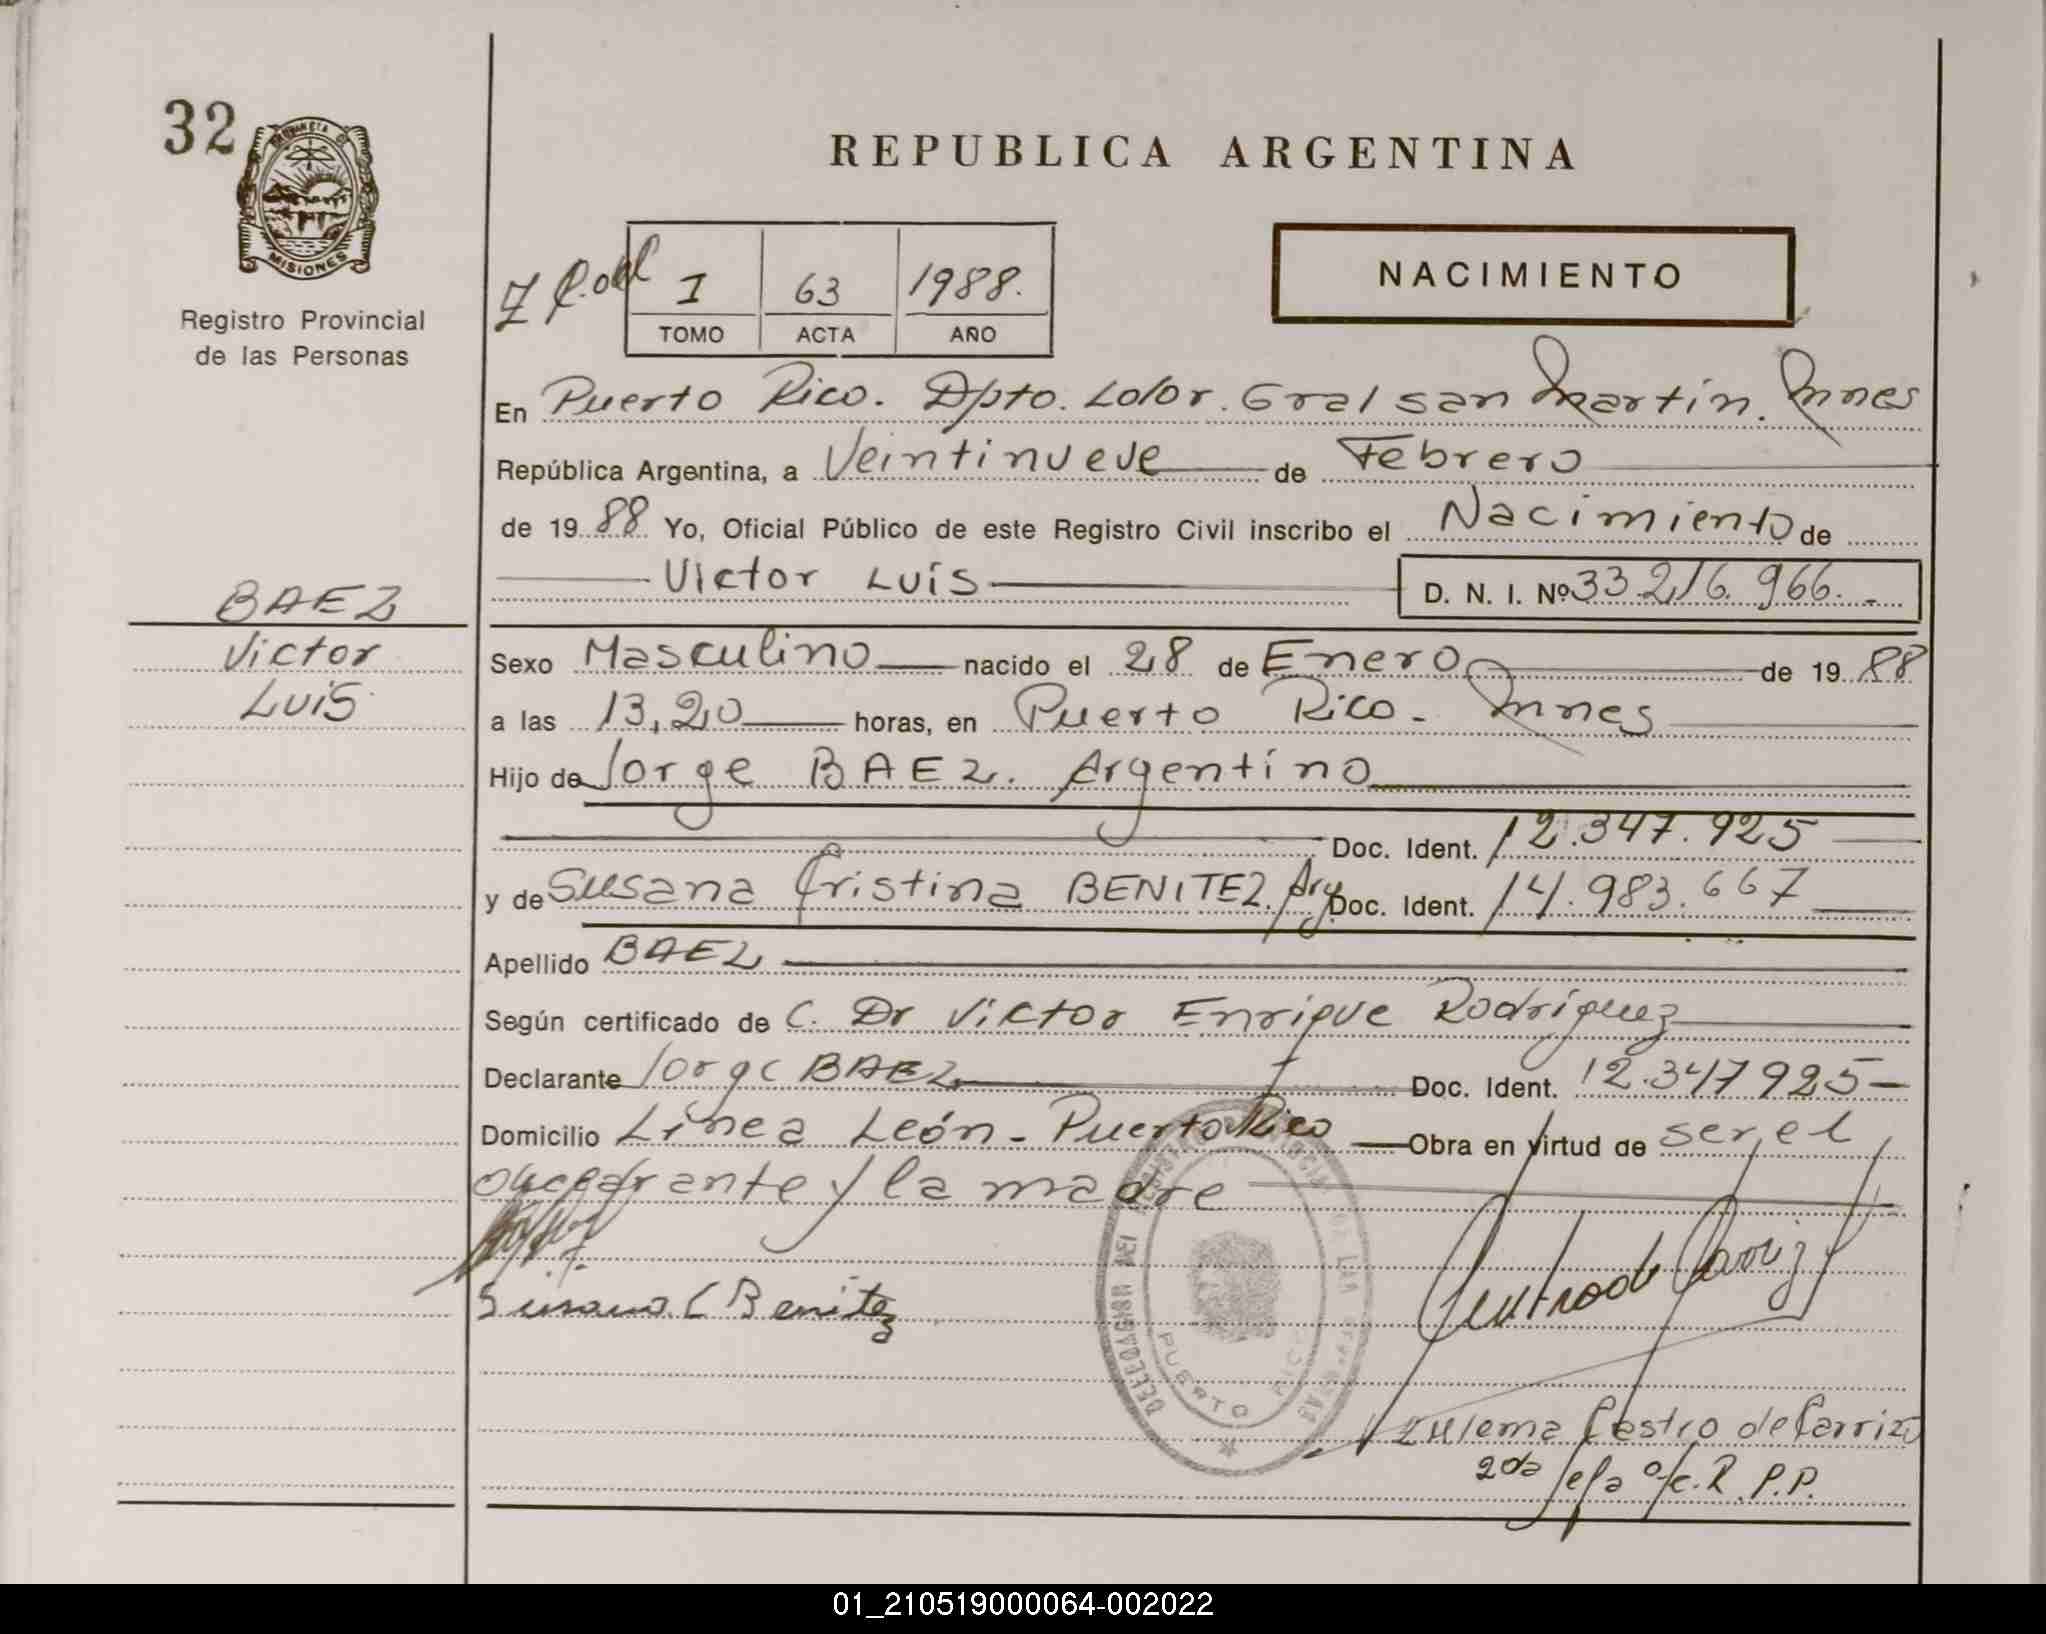 32
MISIONES
Registro Provincial
de las Personas
REPUBLICA ARGENTINA
I 63 1988.
TOMO ACTA AÑO
NACIMIENTO
En Puerto Rico. Dpto. Ldor. Gral san Martín. Mnes
República Argentina, a Veintinueve de Febrero
de 1988 Yo, Oficial Público de este Registro Civil inscribo el Nacimiento de
Victor Luis D. N. I. Nº 33.216.966.-
BAEZ
Victor
Luis
Sexo Masculino nacido el 28 de Enero de 1988
a las 13,20 horas, en Puerto Rico. Mnes
Hijo de Jorge BAEZ. Argentino
Doc. Ident. 12.347.925
y de Susana Cristina BENITEZ. Arg. Doc. Ident. 14.983.667
Apellido BAEZ
Según certificado de C. Dr Victor Enrique Rodriguez
Declarante Jorge BAEZ Doc. Ident. 12.347925-
Domicilio Línea León - Puerto Rico Obra en virtud de ser, el
y la madre
Susana C Benitez
DELEGACION DEL REGISTRO PROVINCIAL DE LAS PERSONAS
PUERTO RICO
Zulema Castro de Carrizo
2da Jefa o/c. R.P.P.
01_210519000064-002022